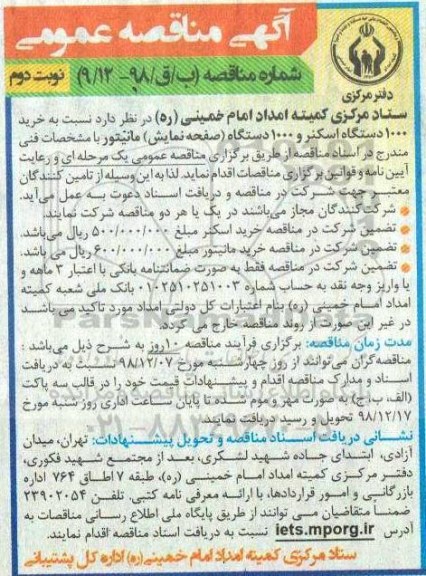 آگهی مناقصه عمومی
شماره مناقصه (ب/ق/۹۸- ۹/۱۲) نوبت دوم
دفتر مرکزی
ستاد مرکزی کمیته امداد امام خمینی (ره) در نظر دارد نسبت به خرید
۱۰۰۰ دستگاه اسکنر و ۱۰۰۰ دستگاه (صفحه نمایش) مانیتور با مشخصات فنی
مندرج در اسناد مناقصه از طریق برگزاری مناقصه عمومی یک مرحله ای و رعایت
آیین نامه و قوانین برگزاری مناقصات اقدام نماید. لذا به این وسیله از تامین کنندگان
معتبر جهت شرکت در مناقصه و دریافت اسناد دعوت به عمل می‌آید.
شرکت‌کنندگان مجاز می‌باشند در یک یا هر دو مناقصه شرکت نمایند.
تضمین شرکت در مناقصه خرید اسکنر مبلغ ۵۰۰/۰۰۰/۰۰۰ ریال می‌باشد.
تضمین شرکت در مناقصه خرید مانیتور مبلغ ۶۰۰/۰۰۰/۰۰۰ ریال می باشد.
تضمین شرکت در مناقصه فقط به صورت ضمانتنامه بانکی با اعتبار ۳ ماهه و
یا واریز وجه نقد به حساب شماره ۰۱۰۲۵۱۰۲۵۱۰۰۳ بانک ملی شعبه کمیته
امداد امام خمینی (ره) بنام اعتبارات کل دولتی امداد مورد تاکید می باشد
در غیر این صورت از روند مناقصه خارج می گردد.
مدت زمان مناقصه: برگزاری فرآیند مناقصه ۱۰روز به شرح ذیل می‌باشد :
مناقصه‌گران می‌توانند از روز چهارشنبه مورخ ۹۸/۱۲/۰۷ نسبت به دریافت
اسناد و مدارک مناقصه اقدام و پیشنهادات قیمت خود را در قالب سه پاکت
(الف، ب، ج) به صورت مهر و موم شده تا پایان ساعت اداری روز شنبه مورخ
۹۸/۱۲/۱۷ تحویل و رسید دریافت نمایند.
نشانی دریافت اسناد مناقصه و تحویل پیشنهادات: تهران، میدان
آزادی، ابتدای جاده شهید لشگری، بعد از مجتمع شهید فکوری،
دفتر مرکزی کمیته امداد امام خمینی (ره)، طبقه ۷ اطاق ۷۶۴ اداره
بازرگانی و امور قراردادها، با ارائه معرفی نامه کتبی. تلفن ۲۳۹۰۲۰۵۴
ضمناً متقاضیان می توانند از طریق پایگاه ملی اطلاع رسانی مناقصات به
آدرس iets.mporg.ir نسبت به دریافت اسناد مناقصه اقدام نمایند.
ستاد مرکزی کمیته امداد امام خمینی(ره) اداره کل پشتیبانی